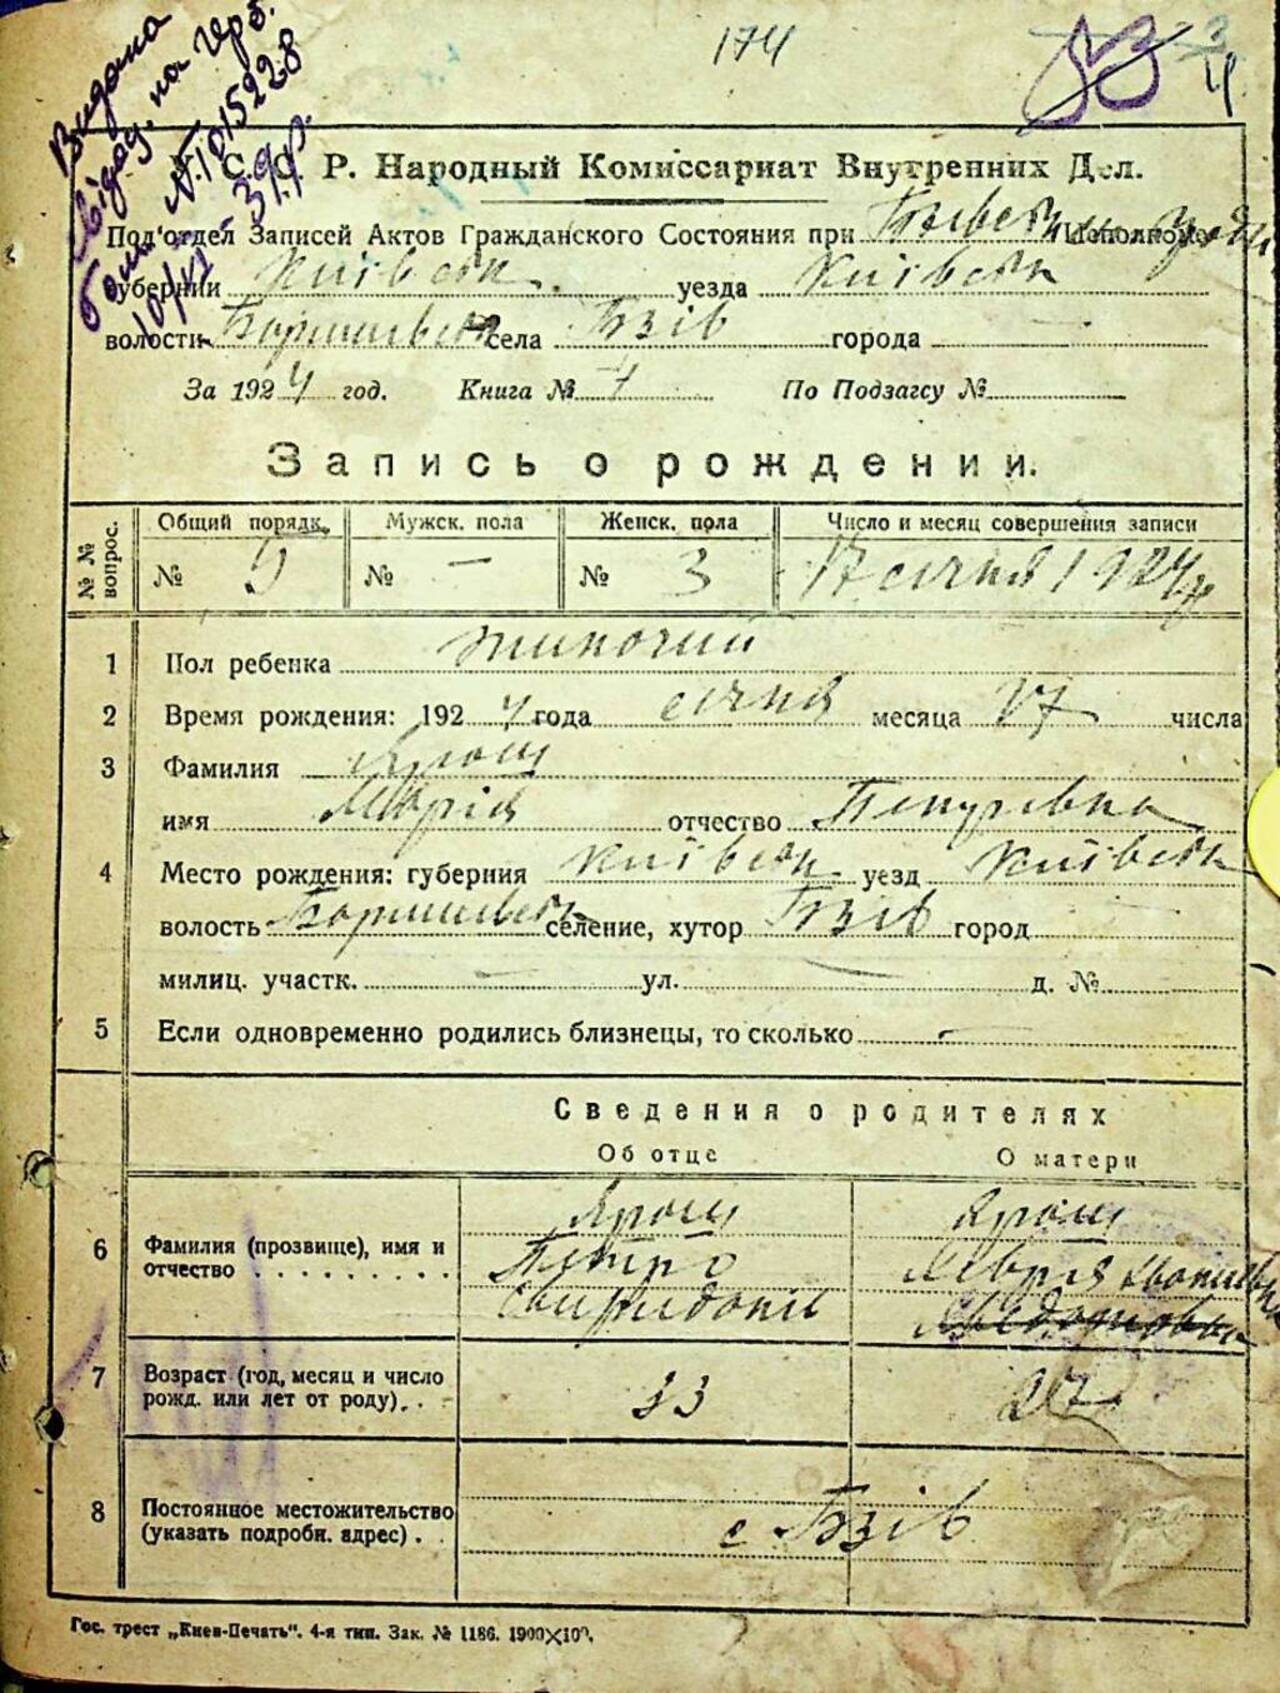 174
Видана
відад. на герб.
бланк №1015228
10/VI 39 р.
У. С. С. Р. Народный Комиссариат Внутренних Дел.
Под'отдел Записей Актов Гражданского Состояния при Исполкоме
Губернии Київськ. уезда Київськ
волости Боришевськ села Бзів города —
За 1924 год. Книга № 1 По Подзагсу №
Запись о рождении.
№ № вопрос. Общий порядк. Мужск. пола Женск. пола Число и месяц совершения записи
№ 5 № — № 3 17 січня 1924 р
1 Пол ребенка жиночий
2 Время рождения: 1924 года січня месяца 17 числа
3 Фамилия Ярош
имя Марія отчество Петровна
4 Место рождения: губерния Київськ уезд Київськ
волость Боришевськ селение, хутор Бзів город
милиц. участк. — ул. — д. №
5 Если одновременно родились близнецы, то сколько —
Сведения о родителях
Об отце О матери
6 Фамилия (прозвище), имя и отчество Ярош Ярош
Петро
Свиридонів
7 Возраст (год, месяц и число рожд. или лет от роду) 33 27
8 Постоянное местожительство (указать подробн. адрес) с Бзів
Гос. трест „Киев-Печать". 4-я тип. Зак. № 1186. 1900×100.